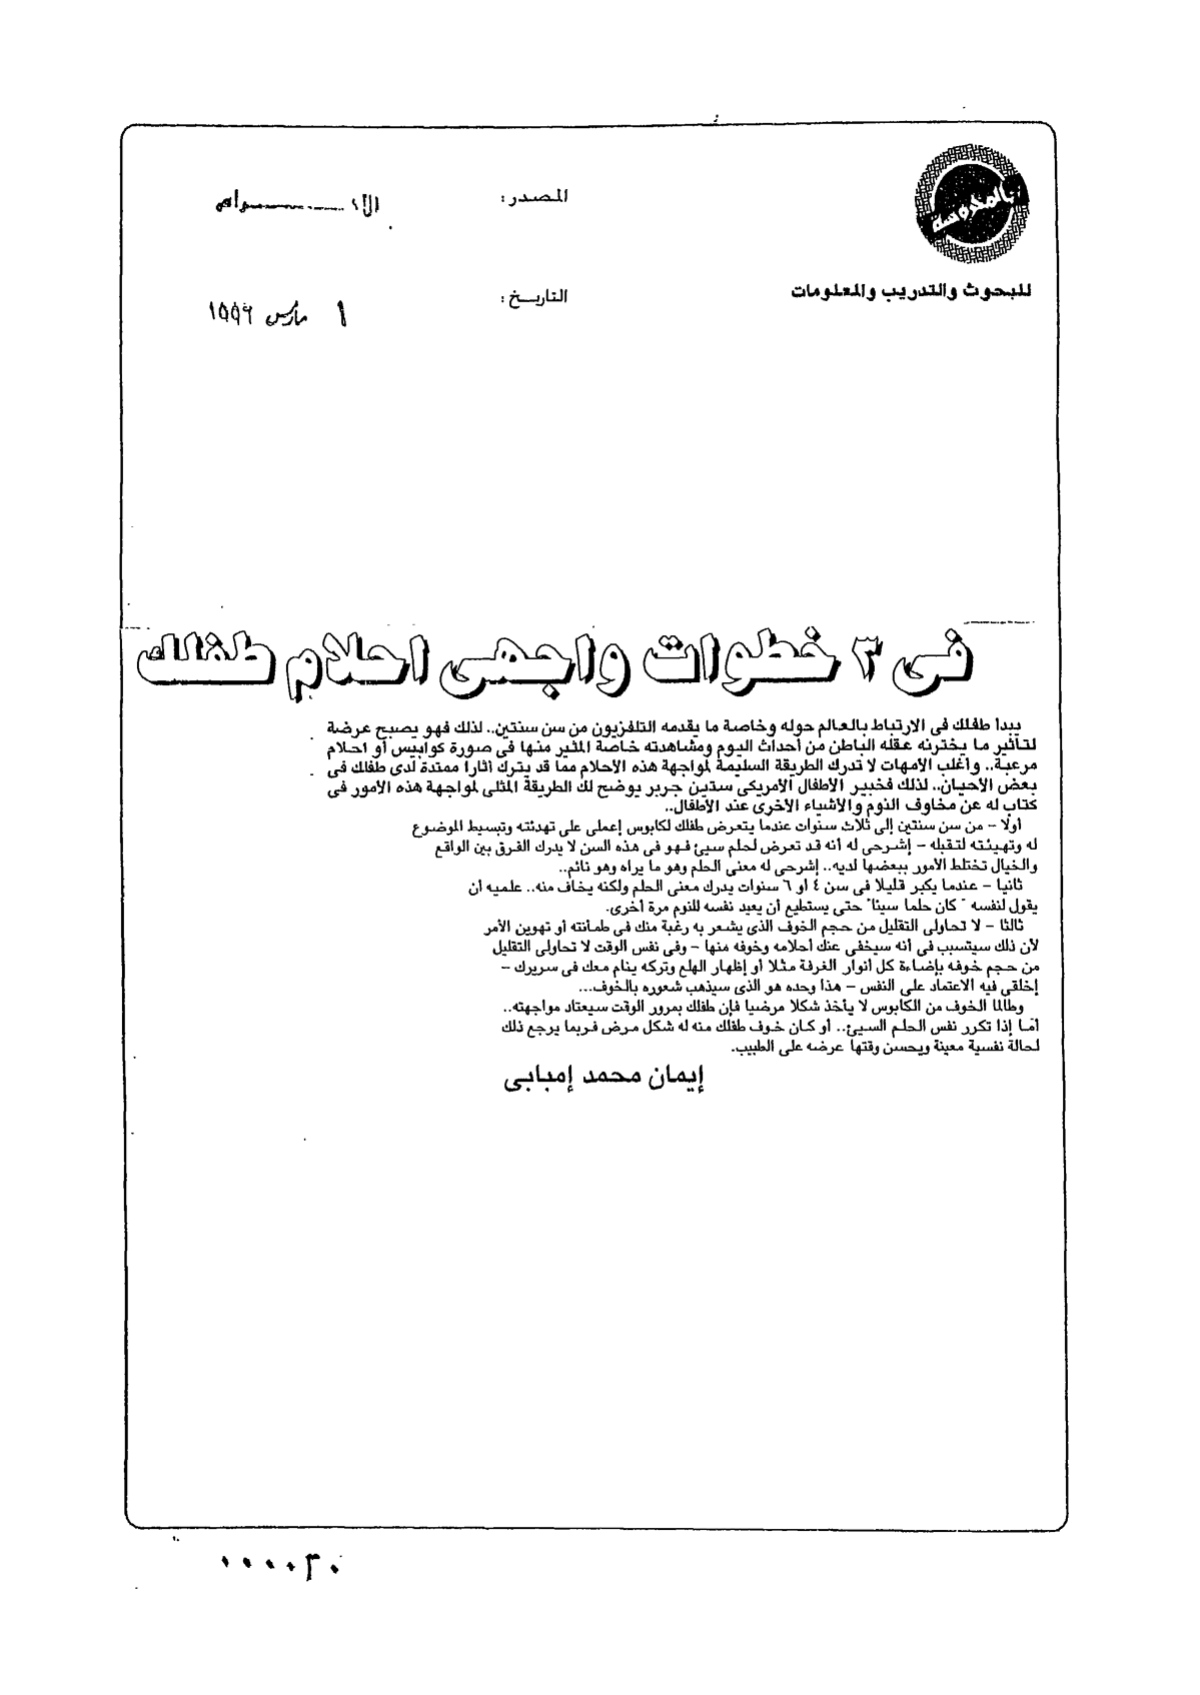 المحروسة
للبحوث والتدريب والمعلومات
المصدر : الأهـــرام
التاريـخ : ١ مارس ١٩٩٦
فى ٣ خطوات واجهى احلام طفلك
يبدا طفلك فى الارتباط بالعالم حوله وخاصة ما يقدمه التلفزيون من سن سنتين.. لذلك فهو يصبح عرضة
لتأثير ما يختزنه عقله الباطن من أحداث اليوم ومشاهدته خاصة المثير منها فى صورة كوابيس أو احلام
مرعبة.. وأغلب الامهات لا تدرك الطريقة السليمة لمواجهة هذه الاحلام مما قد يترك أثارا ممتدة لدى طفلك فى
بعض الاحيان.. لذلك فخبير الأطفال الأمريكى ستين جربر يوضح لك الطريقة المثلى لمواجهة هذه الامور فى
كتاب له عن مخاوف النوم والاشياء الاخرى عند الأطفال..
أولا – من سن سنتين إلى ثلاث سنوات عندما يتعرض طفلك لكابوس إعملى على تهدئته وتبسيط الموضوع
له وتهيئته لتقبله – إشرحى له أنه قد تعرض لحلم سيئ فهو فى هذه السن لا يدرك الفرق بين الواقع
والخيال تختلط الأمور ببعضها لديه.. إشرحى له معنى الحلم وهو ما يراه وهو نائم..
ثانيا – عندما يكبر قليلا فى سن ٤ او ٦ سنوات يدرك معنى الحلم ولكنه يخاف منه.. علميه أن
يقول لنفسه " كان حلما سيئا" حتى يستطيع أن يعيد نفسه للنوم مرة أخرى.
ثالثا – لا تحاولى التقليل من حجم الخوف الذى يشعر به رغبة منك فى طمأنته أو تهوين الأمر
لأن ذلك سيتسبب فى أنه سيخفى عنك أحلامه وخوفه منها – وفى نفس الوقت لا تحاولى التقليل
من حجم خوفه بإضاءة كل أنوار الغرفة مثلا أو إظهار الهلع وتركه ينام معك فى سريرك –
إخلقى فيه الاعتماد على النفس – هذا وحده هو الذى سيذهب شعوره بالخوف...
وطالما الخوف من الكابوس لا يأخذ شكلا مرضيا فإن طفلك بمرور الوقت سيعتاد مواجهته..
أما إذا تكرر نفس الحلم السيئ.. أو كان خوف طفلك منه له شكل مرض فربما يرجع ذلك
لحالة نفسية معينة ويحسن وقتها عرضه على الطبيب.
إيمان محمد إمبابى